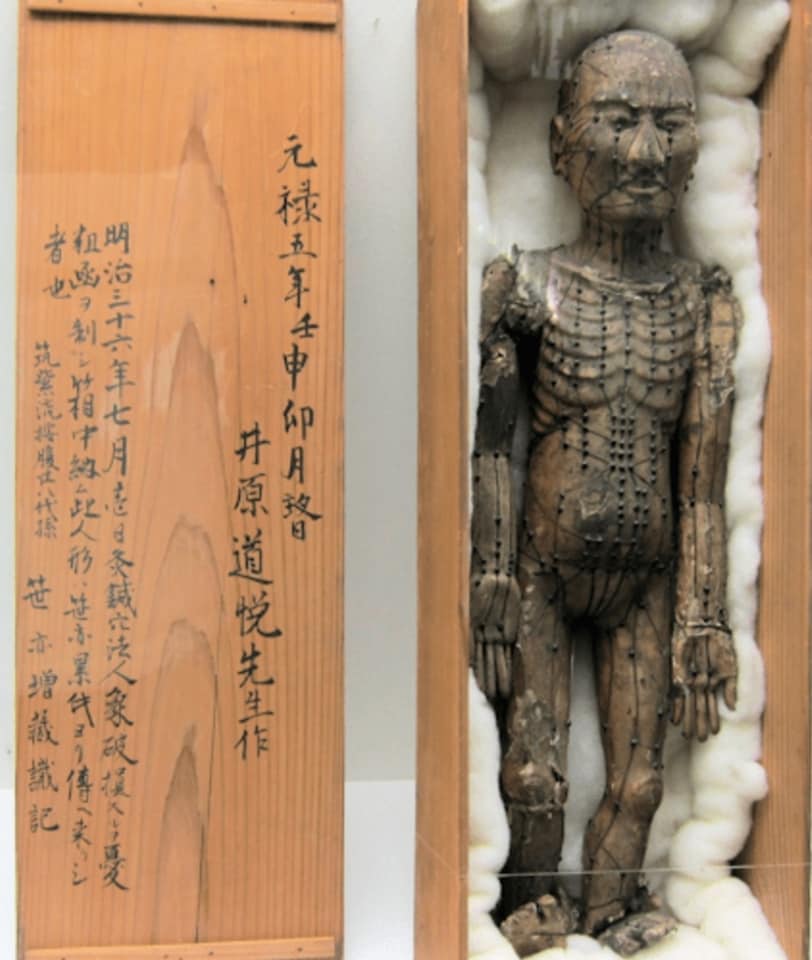 元禄五年壬申卯月
井原道悦先生作
明治三十六年七月壱日灸鍼穴法人象破損スルヲ憂
粗函ヲ制シ箱中納ム此人形ハ笹亦累代ヨリ傳ヘ来リシ
者也
筑紫流按腹廿八代孫 笹亦増蔵識記